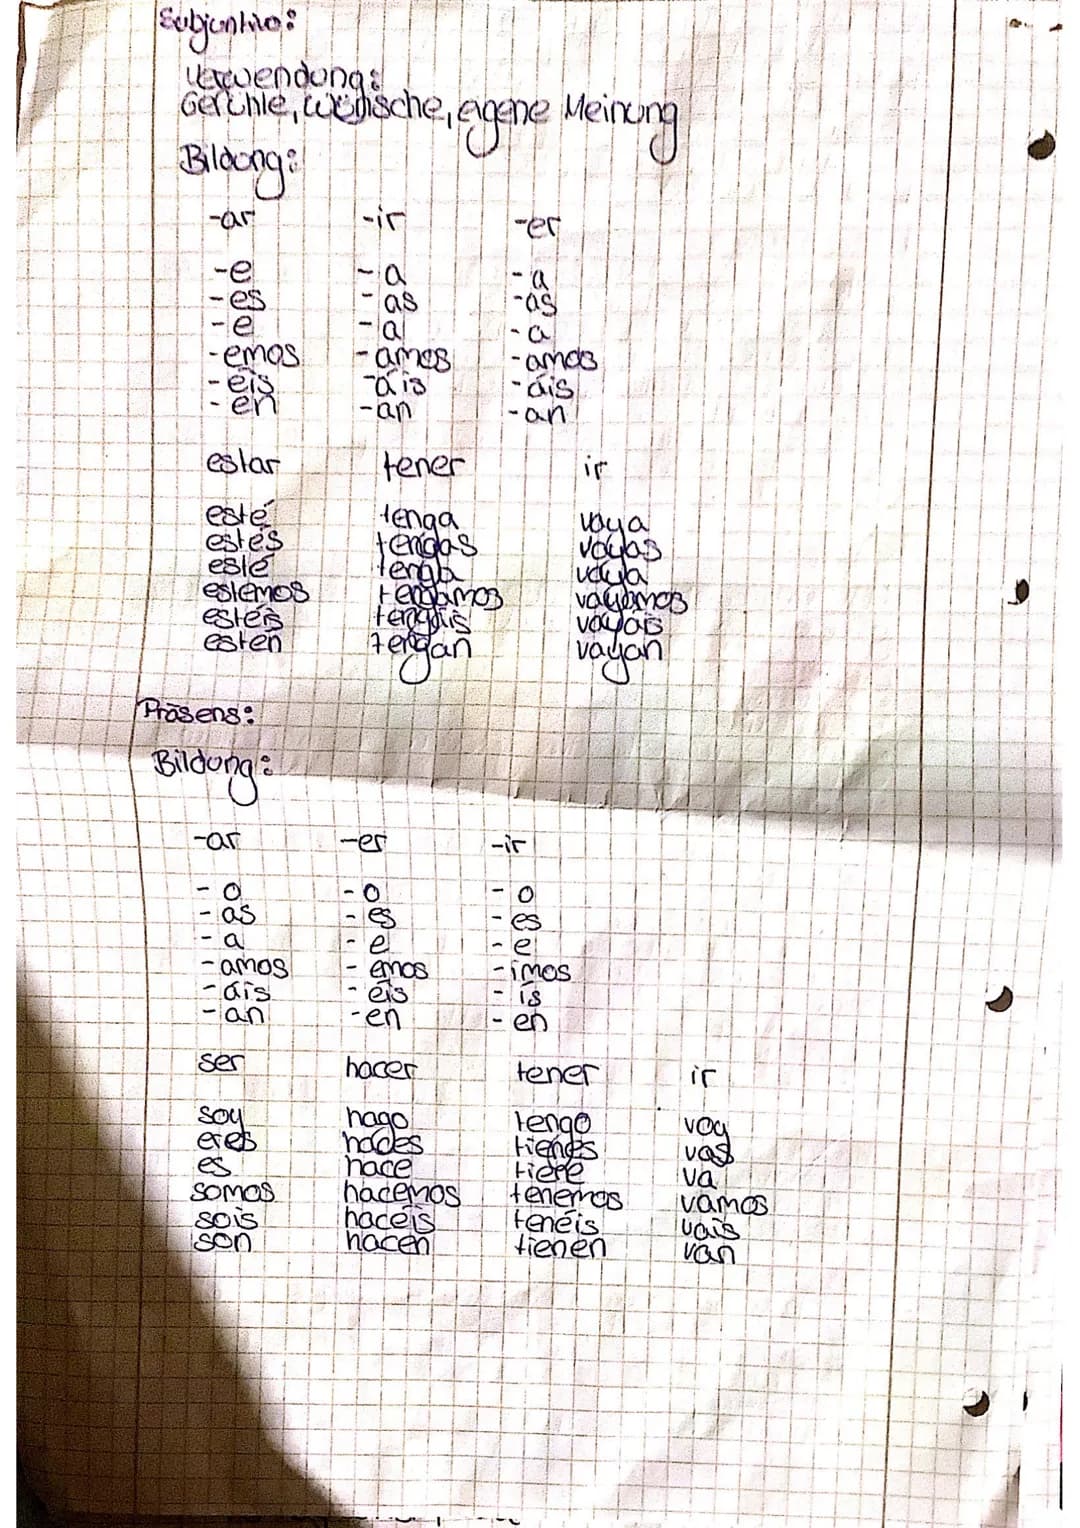 Subjuntivo:
Verwendung:
Gefühle, Wünsche, eigene Meinung
Bildung:
-ar -ir -er
-e -a -a
-es -as -as
-e -a -a
-emos -amos -amos
-éis -áis -áis
-en -an -an
estar tener ir
esté tenga vaya
estés tengas vayas
esté tenga vaya
estemos tengamos vayamos
estéis tengáis vayáis
estén tengan vayan
Präsens:
Bildung:
-ar -er -ir
-o -o -o
-as -es -es
-a -e -e
-amos -emos -imos
-áis -éis -ís
-an -en -en
ser hacer tener ir
soy hago tengo voy
eres haces tienes vas
es hace tiene va
somos hacemos tenemos vamos
sois hacéis tenéis vais
son hacen tienen van